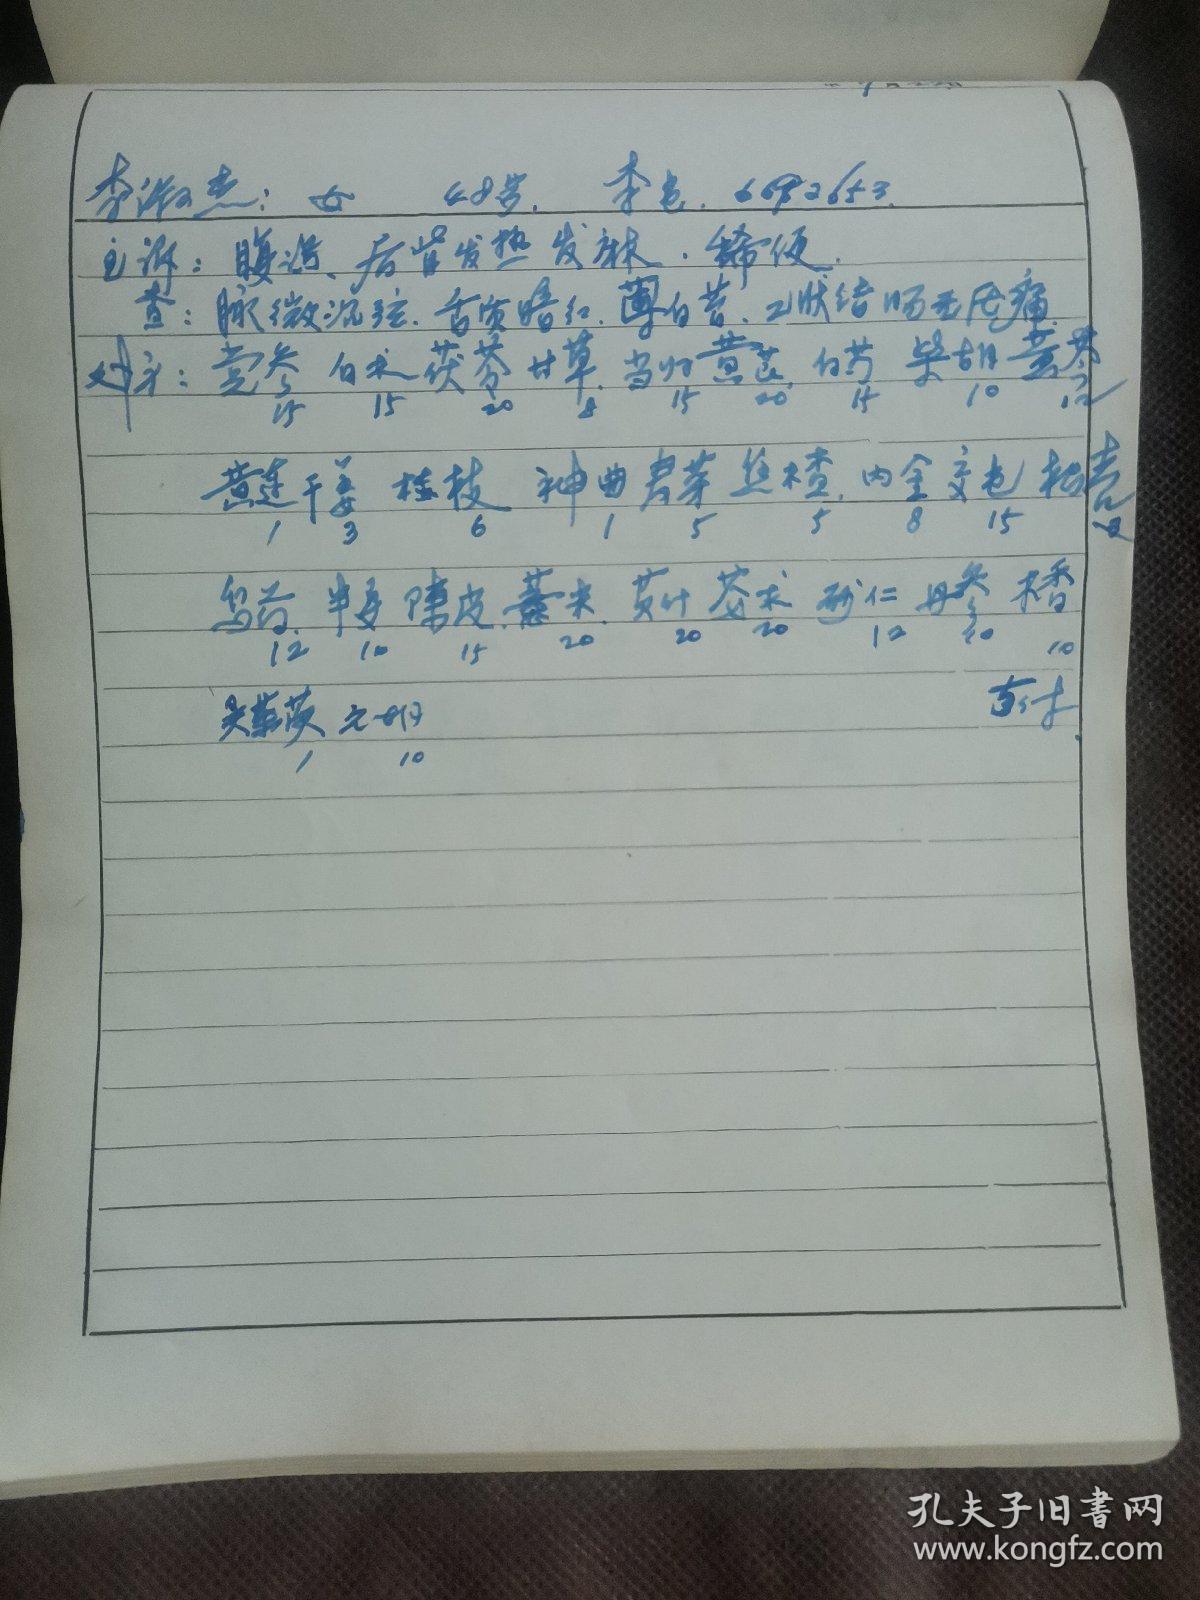 李淑杰：女 48岁. 李屯. 6692653.
主诉：腹泻、后背发热发麻. 稀便.
查：脉微沉弦. 舌质暗红. 薄白苔. 乙状结肠无压痛.
处方：党参 白术 茯苓 甘草. 当归 黄芪. 白芍 柴胡 黄芩
15 15 20 8 15 20 15 10 12
黄连 干姜 桂枝 神曲 君芽 丝楂. 内金 文七 枳壳
1 3 6 1 5 5 8 15
乌药. 半夏 陈皮. 薏米. 英叶 苍术 砂仁 丹参 木香
12 10 15 20 20 20 12 10 10
吴茱萸 元胡
1 10
孔夫子旧书网
www.kongfz.com